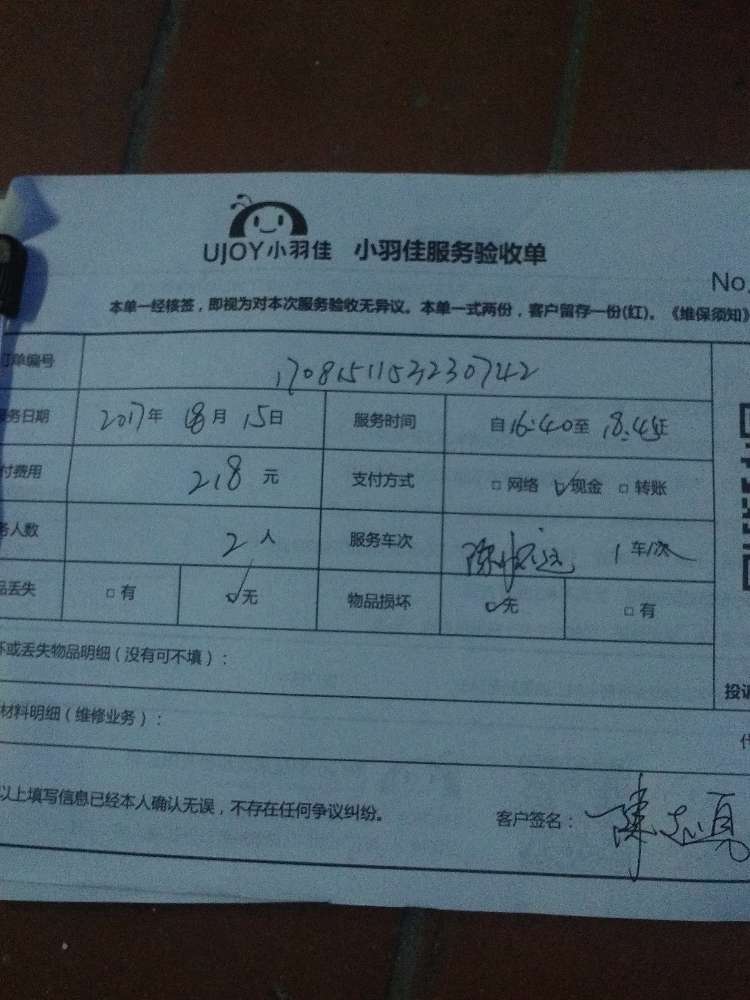 UJOY小羽佳 小羽佳服务验收单
No.
本单一经核签，即视为对本次服务验收无异议。本单一式两份，客户留存一份(红)。《维保须知》
订单编号 1708151153230742
服务日期 2017年 08月 15日 服务时间 自16:40至 18:45止
付费用 218元 支付方式 □ 网络 ☑现金 □ 转账
务人数 2人 服务车次 1车/次
品丢失 □ 有 ☑无 物品损坏 ☑无 □ 有
坏或丢失物品明细（没有可不填）：
投诉
材料明细（维修业务）：
以上填写信息已经本人确认无误，不存在任何争议纠纷。 客户签名：